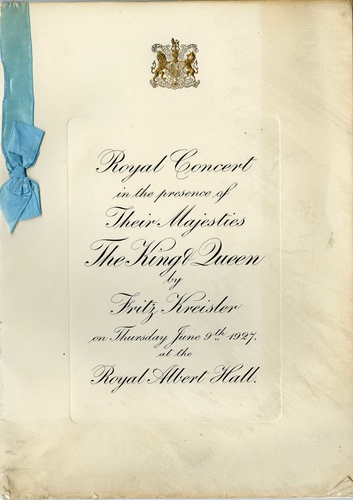 Royal Concert
in the presence of
Their Majesties
The King & Queen
by
Fritz Kreisler
on Thursday June 9th 1927.
at the
Royal Albert Hall.